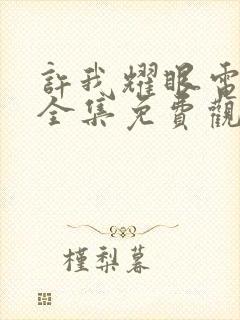 許我耀眼電
全集免費觀
槿梨暮